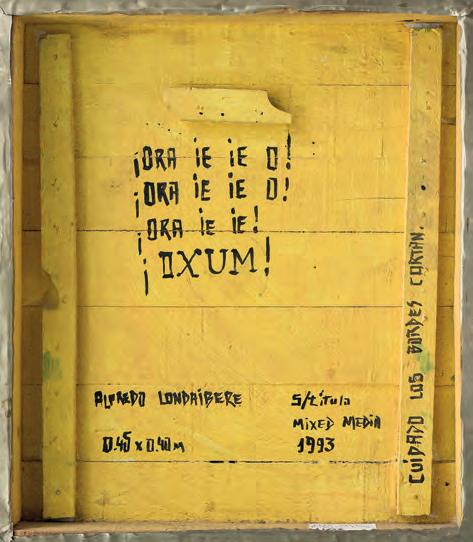 ¡ORA iE iE O!
¡ORA iE iE O!
¡ORA iE iE!
¡OXUM!
ALFREDO LONDAiBERE
0.45 x 0.40 M
S/título
MiXED MEDiA
1993
CUiDADO LOS BORDES CORTAN.